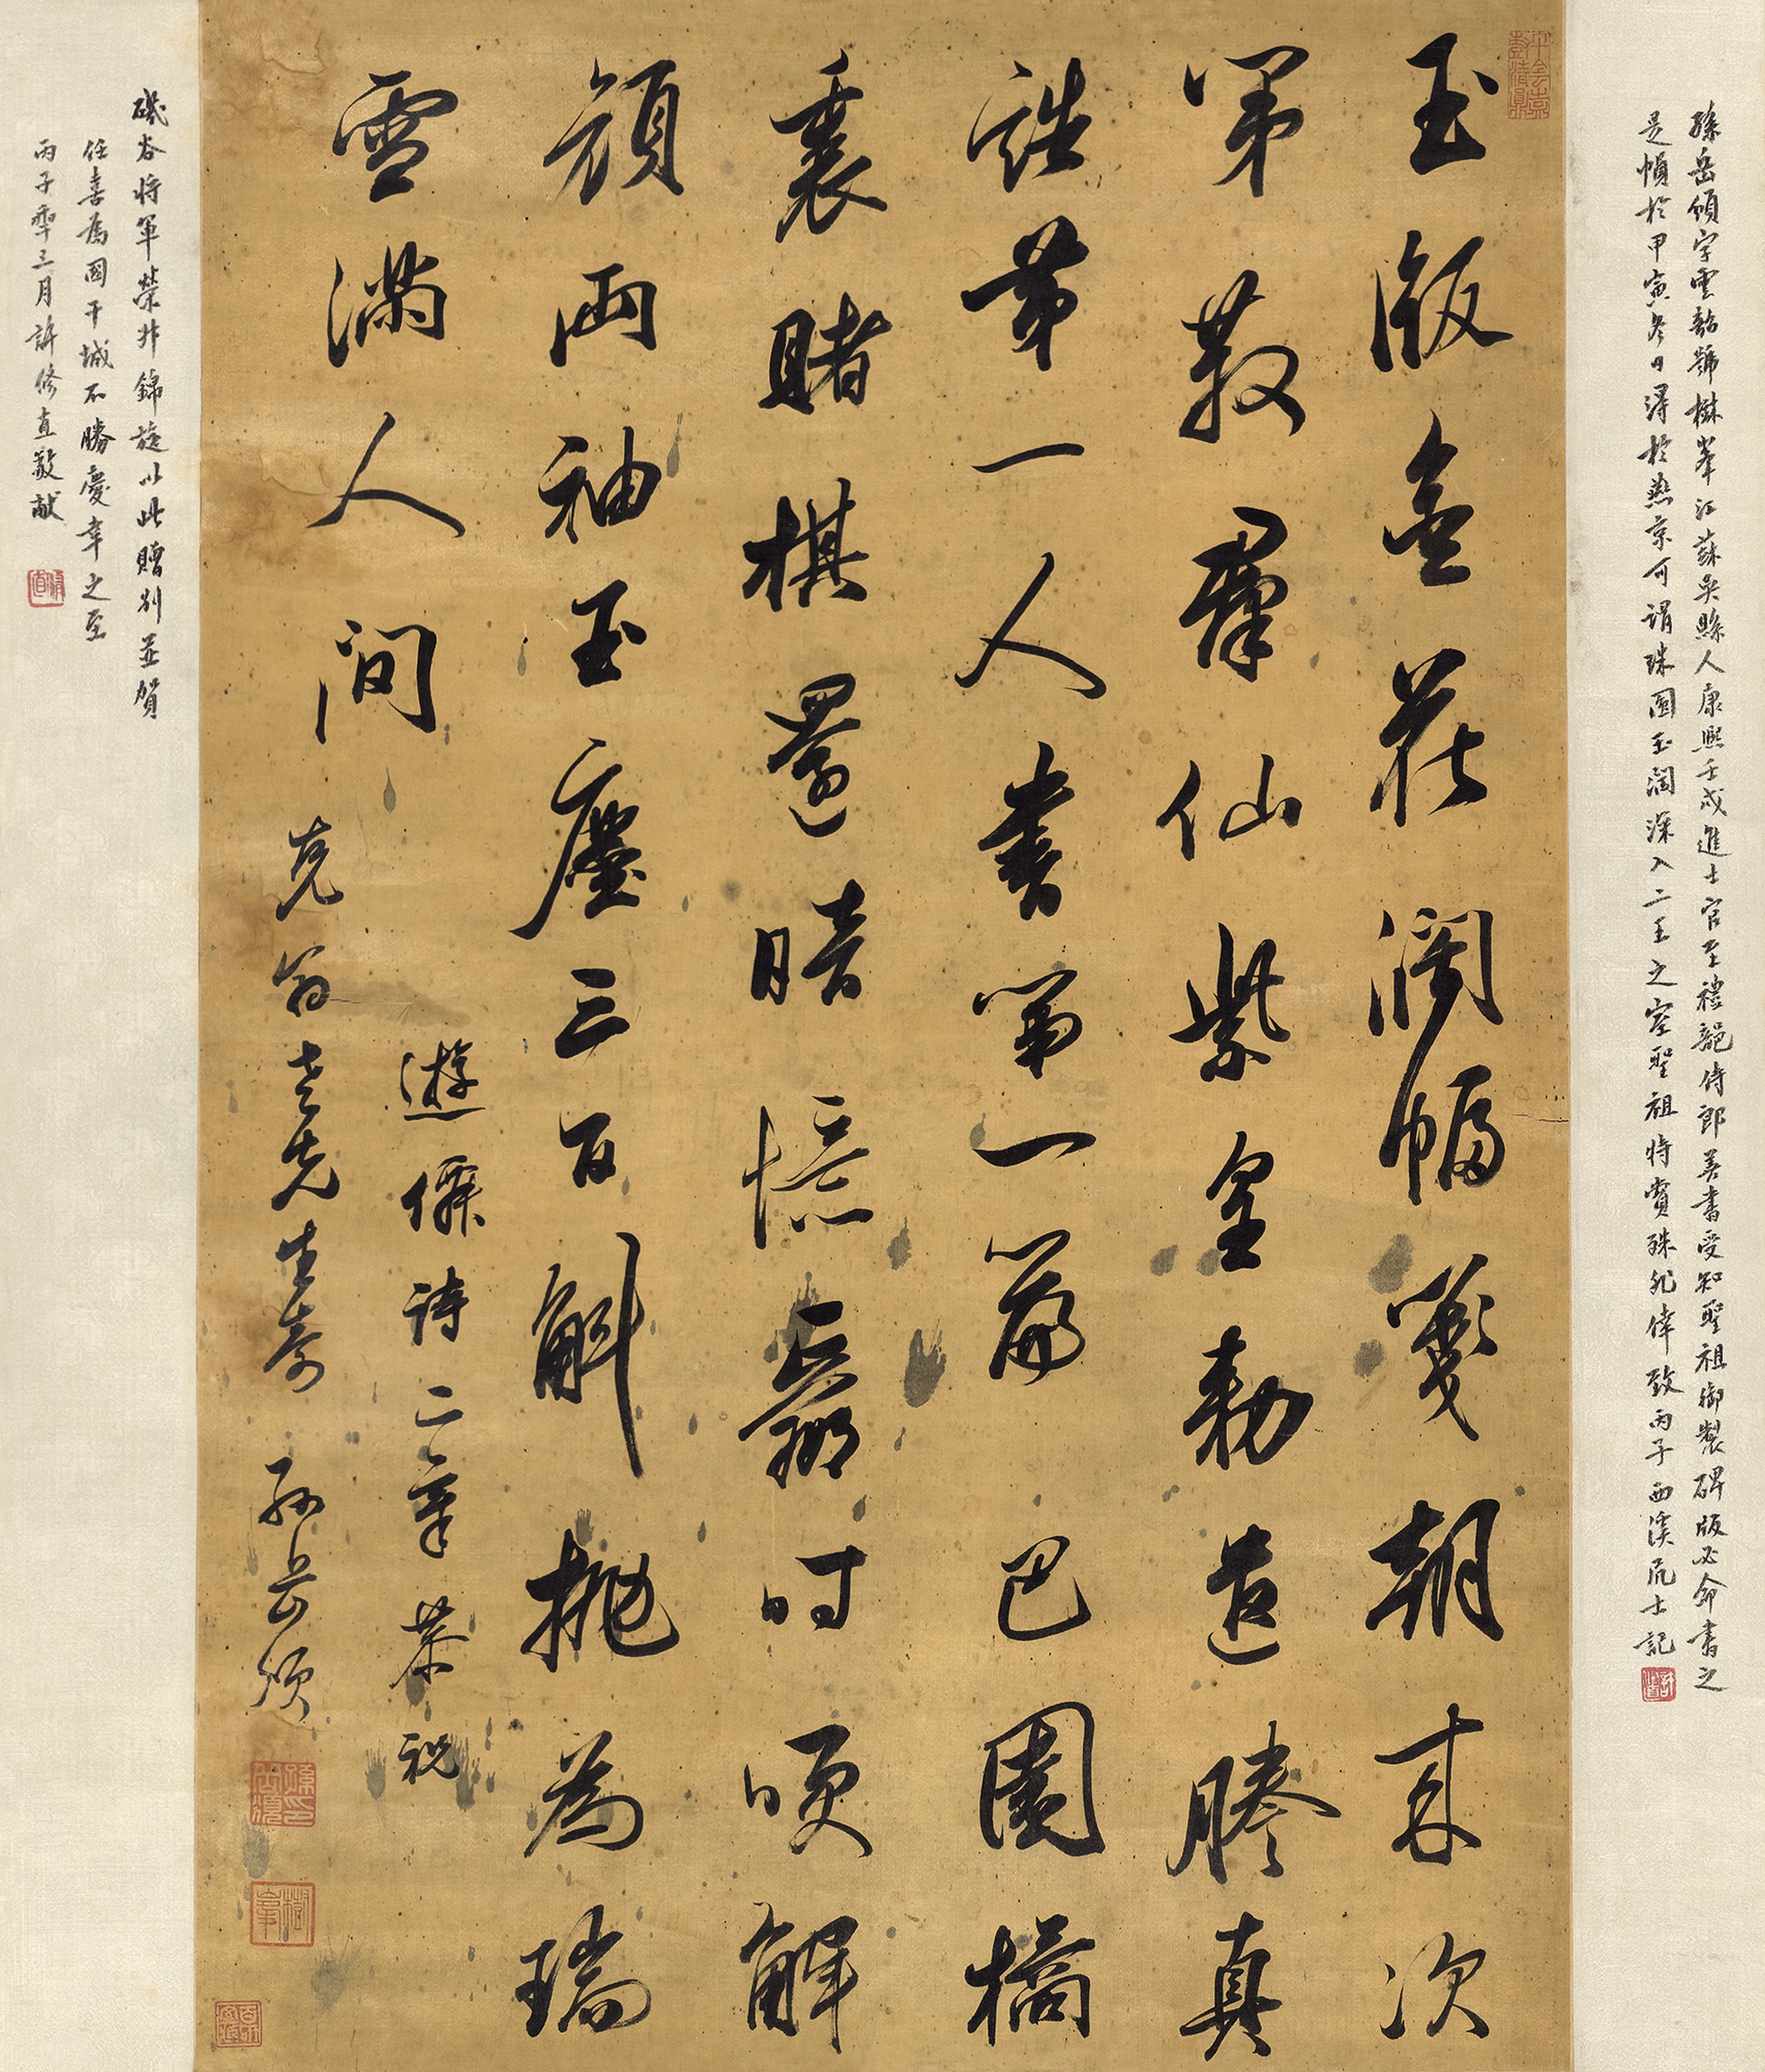 孫岳頒字雲韶號樹峯江蘇吳縣人康熙壬戌進士官至禮部侍郎善書受知聖祖御製碑版必命書之
是幀於甲寅冬日得於燕京可謂珠圓玉潤深入二王之室聖祖特賞殊非倖致丙子西溪居士記
玉版金花闊幅箋朝來次
第散羣仙紫皇勅造騰真
誥第一人書第一篇巴園橘
裏賭棋還暗憶霸时頃解
頗兩袖玉塵三百斛拋為瑞
雪滿人間
遊僊詩二章恭祝
克翁老先生壽 孫岳頒
磯谷將軍榮升錦旋以此贈別並賀
任喜為國干城不勝慶幸之至
丙子季三月許修直敬献